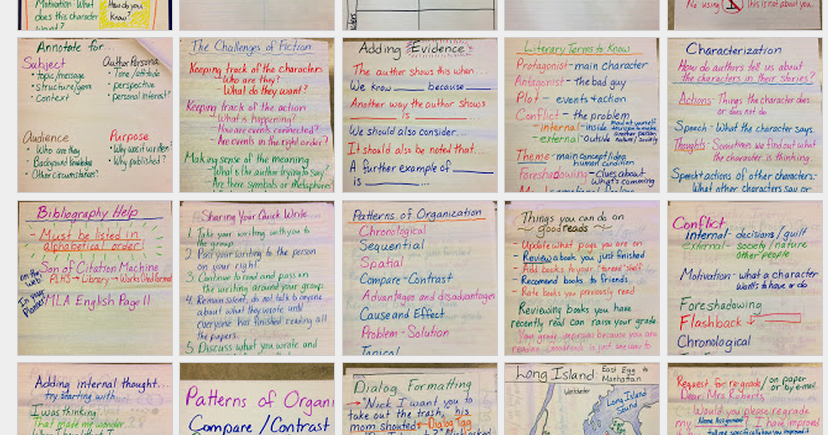 Motivation What
does this character
want?
How do you
know?
No using
This is not about you.
Annotate for...
Subject
• topic/message
• structure/genre
• context
Author Persona
• Tone/attitude
• perspective
• personal interest?
Audience
• Who are they
• Background knowledge
• Other circumstances?
Purpose
• Why was it written?
• Why published?
The Challenges of Fiction
Keeping track of the characters
Who are they?
What do they want?
Keeping track of the action
What is happening?
How are events connected?
Are events in the right order?
Making sense of the meaning
What's the author trying to say?
Are there symbols or metaphors?
Adding Evidence
The author shows this when...
We know ____ because ____
Another way the author shows
____ is ____
We should also consider...
It should also be noted that...
A further example of ____
is ____...
Literary Terms to Know
Protagonist - main character
Antagonist - the bad guy
Plot - events + action
Conflict - the problem
- internal - inside
- external - outside
Theme - main concept/idea
human condition
Foreshadowing - Clues about
what's coming
Characterization
How do authors tell us about
the characters in their stories?
Actions - Things the character does
or does not do
Speech - What the character says.
Thoughts - Sometimes we find out what
the character is thinking.
Speech + actions of other characters -
What other characters say or
Bibliography Help
- Must be listed in
alphabetical order!
on the web
Son of Citation Machine
PLHS → Library → Works Cited format
In Your Planner
MLA English Page 11
Sharing Your Quick Write...
1. Take your writing with you to
the group.
2. Pass your writing to the person
on your right.
3. Continue to read and pass
the writing around your group.
4. Remain silent, do not talk to anyone
about what they wrote until
everyone has finished reading all
the papers.
5. Discuss what you wrote and
Patterns of Organization
Chronological
Sequential
Spatial
Compare - Contrast
Advantages and disadvantages
Cause and Effect
Problem - Solution
Topical
Things you can do on
goodreads
- Update what page you are on
- Review a book you just finished
- Add books to your "to read" shelf
- Recommend books to friends
- Rate books you previously read
Reviewing books you have
recently read can raise your grade.
Conflict
Internal - decisions/guilt
external - society/nature
other people
Motivation - what a character
wants to have or do
Foreshadowing
Flashback
Chronological
Adding internal thought...
try starting with
I was thinking
That made me wonder
Patterns of Organi
Compare/Contrast
Dialog Formatting
"Nick I want you to
take out the trash," his
mom shouted ← Dialog Tag
Long Island: East Egg to
Manhattan
Long Island
Sound
Request for re-grade / on paper
or by e-mail
Dear Mrs Roberts,
Would you please regrade
my Name Assignment. I have improved